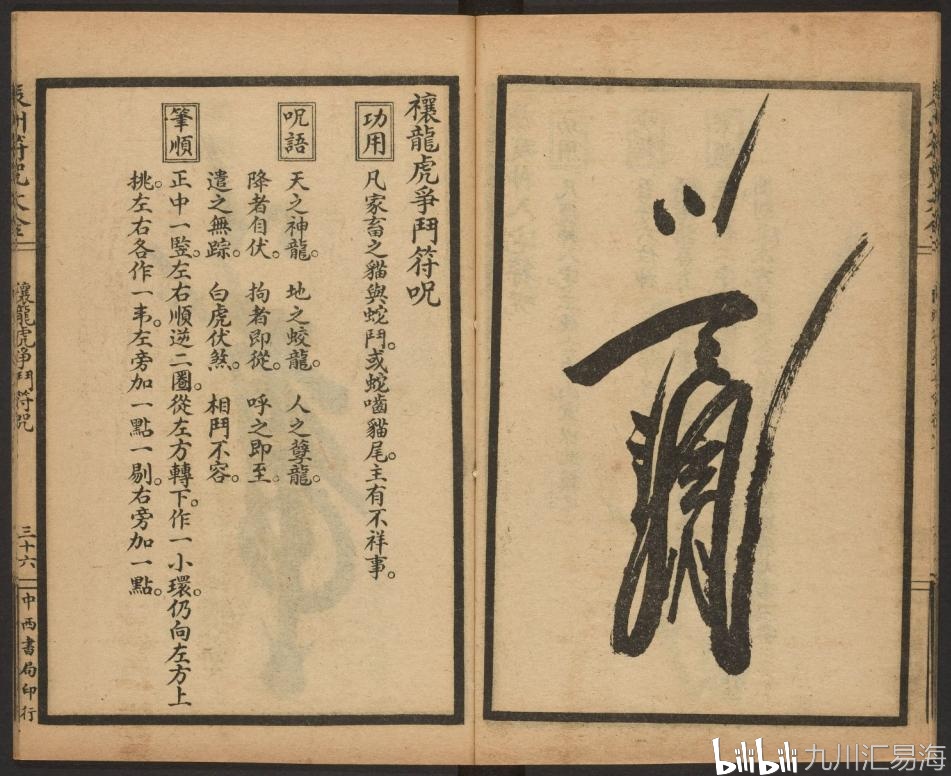 禳龍虎爭鬥符呪
功用
凡家畜之貓與蛇鬥。或蛇嚙貓尾。主有不祥事。
呪語
天之神龍。地之蛟龍。人之孽龍。
降者自伏。拘者即從。呼之即至。
遣之無踪。白虎伏煞。相鬥不容。
筆順
正中一竪。左右順逆二圈。從左方轉下。作一小環。仍向左方上
挑。左右各作一韦。左旁加一點一剔。右旁加一點。
符呪大全
禳龍虎爭鬥符呪
三十六
中西書局印行
bilibili 九川汇易海